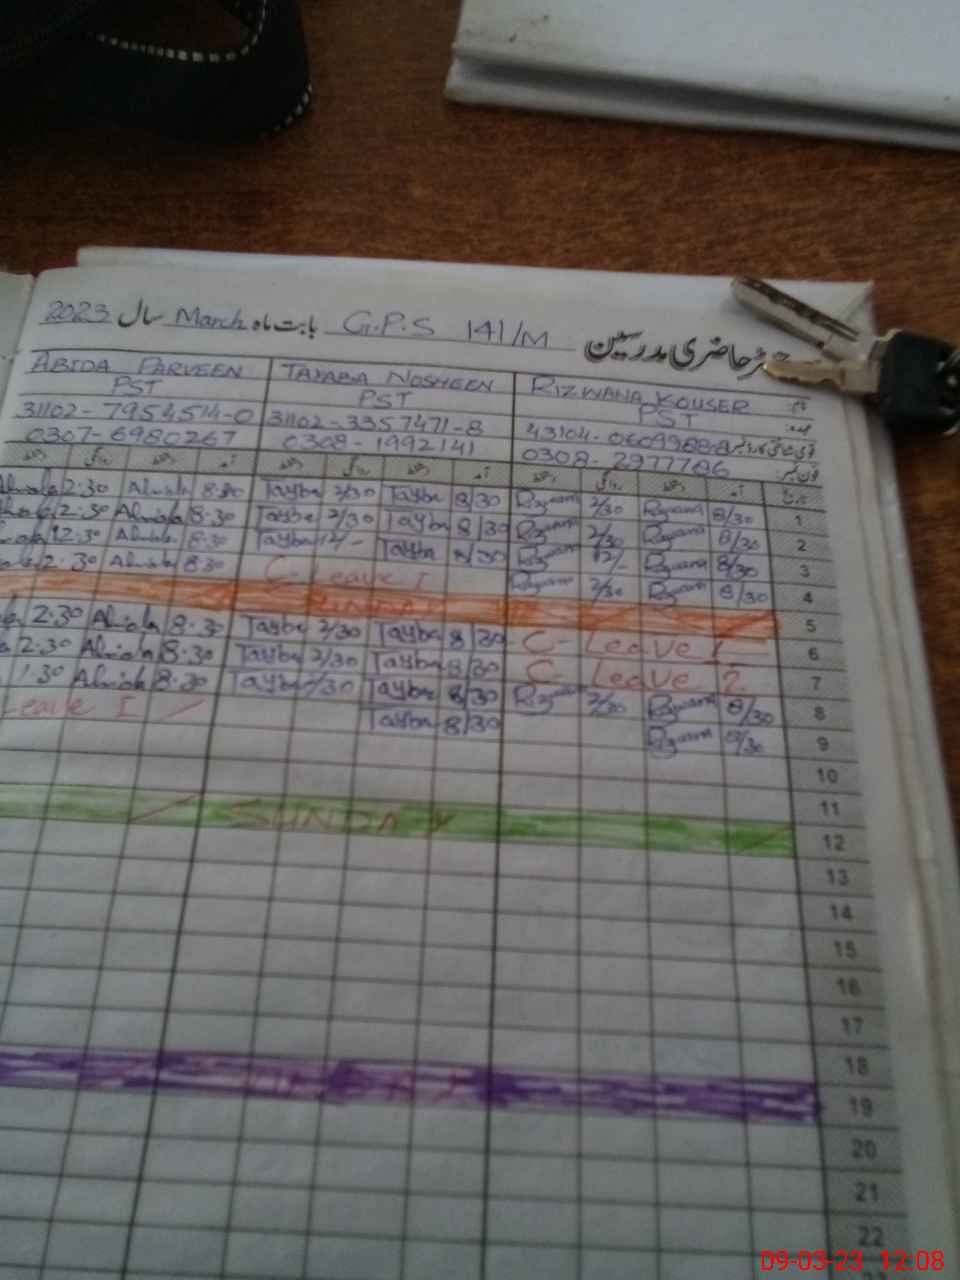 رجسٹر حاضری مدرسین G.P.S 141/M بابت ماہ March سال 2023
نام RIZWANA KOUSER TAYABA NOSHEEN ABIDA PARVEEN
عہدہ PST PST PST
43104-0609988-8 31102-3357471-8 31102-7954514-0
فون نمبر 0308-2977786 0308-1992141 0307-6980267
تاریخ آمد دستخط روانگی دستخط آمد دستخط روانگی دستخط آمد دستخط روانگی دستخط
1 8/30 Rizwana 2/30 Rizwana 8/30 Tayba 2/30 Tayba 8:30 Abida 2:30
2 8/30 Rizwana 2/30 8/30 Tayba 2/30 Tayba 8:30 Abida 2:30
3 8/30 Rizwana 12/- 8/30 Tayba 12/- Tayba 8:30 Abida 12:30
4 8/30 Rizwana 2/30 Rizwana C-Leave 1 8:30 Abida 2:30
5 SUNDAY
6 C-Leave 1 8/30 Tayba 2/30 Tayba 8:30 Abida 2:30
7 C-Leave 2 8/30 Tayba 2/30 Tayba 8:30 Abida 2:30
8 8/30 Rizwana 2/30 8/30 Tayba 2/30 Tayba 8:30 Abida 1:30
9 8/30 Rizwana 8/30 Tayba Leave 1
10
11
12 SUNDAY
13
14
15
16
17
18
19
20
21
22
09-03-23 12:08